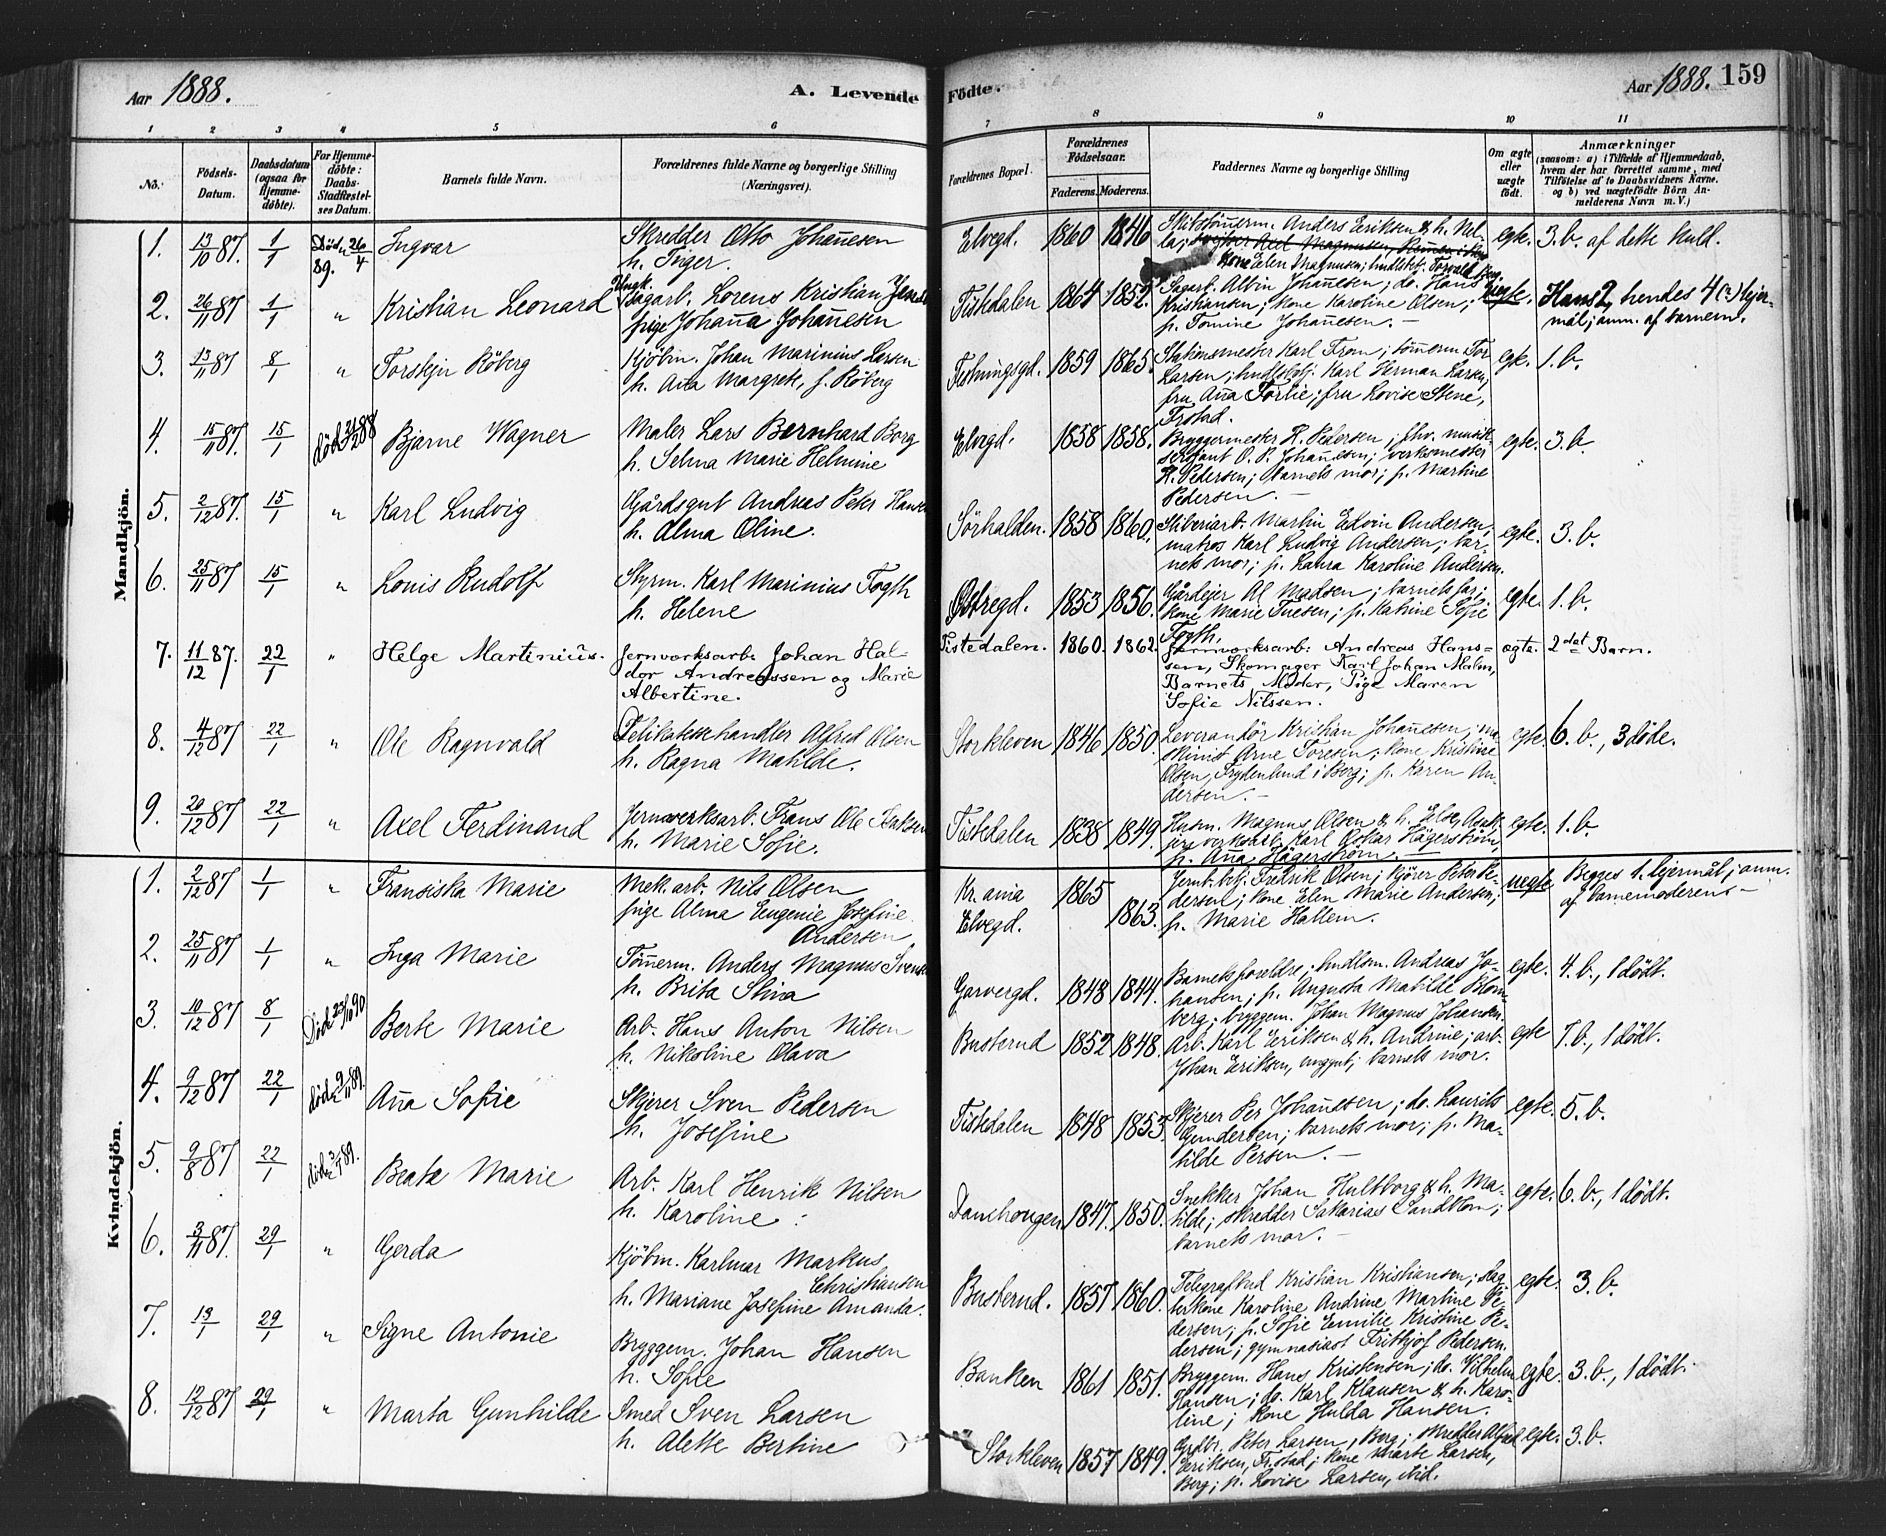 Aar 1888.
A. Levende Fødte.
Aar 1888. 159
1 2 3 4 5 6 7 8 9 10 11
No.
Fødsels-Datum.
Daabsdatum (ogsaa for Hjemmedøbte).
For Hjemmedøbte: Daabs-Stadfæstelses Datum.
Barnets fulde Navn.
Forældrenes fulde Navne og borgerlige Stilling (Næringsvei).
Forældrenes Bopæl.
Forældrenes Fødselsaar.
Faderens. Moderens.
Faddernes Navne og borgerlige Stilling
Om ægte eller uægte født.
Anmærkninger
(saasom: a) i Tilfælde af Hjemmedaab, hvem der har forrettet samme, med Tilføielse af to Daabsvidners Navne. og b) ved uægtefødte Børn Anmelderens Navn m. V.)
Mandkjøn.
1. 13/10 87. 1/1 Død 26/4 89. Ingvar
Skredder Otto Johan̄esen
h. Inger.
Elvegd. 1860 1846
Anders Eriksen & h.
Kone Elen Magnusen;
egte. 3. b. af dette kuld.
2. 26/11 87 1/1 " Kristian Leonard
Ungk. Sagarb. Lorens Kristian
pige Johan̄a Johan̄esen
Tistedalen 1864 1852.
Sagarb. Albin Johan̄esen; do. Hans
Kristiansen; kone Karoline Olsen;
p. Tomine Johan̄esen. –
uegte. Hans 2, hendes 4 (?) leiermål; anm. af barnem.
3. 13/11 87 8/1 " Torstejn Röberg
Kjöbm. Johan Marinius Larsen
h. An̄a Margrete, f. Röberg
Festningsgd. 1859 1865.
Stationsmester Karl From; tömerm. Tor
Larsen; hndlsbtj. Karl Herman Larsen,
fru An̄a Förlie; fru Lovise Stene,
Frstad.
egte. 1. b.
4. 15/11 87. 15/1 död 88 Bjarne Wagner
Maler Lars Bernhard Borg
h. Selma Marie Helmine
Elvegd. 1858 1858.
Bryggermester H. Pedersen; fhv. musik-
serjant O. P. Johan̄esen; verksmester
H. Pedersen; barnets mor; p. Martine
Pedersen. –
egte. 3. b.
5. 2/12 87. 15/1 " Karl Ludvig
Gårdsgut Andreas Peter Hansen
h. Alma Oline.
Sörhalden. 1858 1860.
Stiberiarb. Martin Edvin Andersen;
matros Karl Ludvig Andersen; bar-
nets mor; p. Laura Karoline Andersen.
egte. 3. b.
6. 25/11 87 15/1 " Louis Rudolf
Styrm. Karl Marinius Fogth
h. Helene
Østregd. 1853 1856.
Gårdejer Al Madsen; barnets far;
kone Marie Tuesen; p. Katrine Sofie
Fogth.
egte. 1. b.
7. 11/12 87. 22/1 " Helge Martinius.
Jernværksarb. Johan Hal-
dor Andreassen og Marie
Albertine.
Tistedalen. 1860. 1862.
Jernværksarb. Andreas Hans-
sen, Skomager Karl Johan Malm,
Barnets Moder, Pige Maren
Sofie Nilssen.
ægte. 2det Barn.
8. 4/12 87 22/1 " Ole Ragnvald
Delikatessehandler Alfred Olsen
h. Ragna Matilde.
Storkleven 1846 1850.
Leverandör Kristian Johan̄esen; ma-
skinist Arne Toresen; kone Kristine
Olsen, Frydenlund i Berg; p. Karen An-
dersen. –
egte. 6. b., 3 döde.
9. 20/12 87 22/1 " Axel Ferdinand
Jernverksarb. Frans Ole
h. Marie Sofie.
Tistedalen 1838 1849.
Husm. Magnus Olsen & h. Else;
Karl Oskar Hägerström
p. An̄a Hägerström. –
egte. 1. b.
Kvindekjøn.
1. 2/12 87 1/1 " Fransiska Marie
Mek. arb. Nils Olsen
pige Alma Eugenie Josefine
Andersen
Kr.ania
Elvegd.
1865 1863.
Jernb. btj. Fredrik Olsen; kjörer Peter Pe-
dersen; kone Elen Marie Andersen;
p. Marie Hallem.
uegte Begges 1. lejermål; anm.
af barnemoderens –
2. 25/11 87 1/1 " Inga Marie
Töm̄erm. Anders Magnus Svensen
h. Brita Stina
Garvergd. 1848 1844.
Barnets foreldre; hndlsm. Andreas Jo-
hansen; p. Augusta Matilde Blom-
berg; bryggem. Johan Magnus Johansen.
egte. 4. b., 1 dödt.
3. 10/12 87 8/1 Död 23/10 90 Berte Marie
Arb. Hans Anton Nilsen
h. Nikoline Olava
Busterud 1852 1848.
Arb. Karl Eriksen & h. Andrine; arb.
Johan Eriksen, unggut; barnets mor.
egte 7. b., 1 dödt.
4. 9/12 87 22/1 död 9/11 89. An̄a Sofie
Skjerer Sven Pedersen
h. Josefine
Tistedalen 1848 1853.
Skjerer Per Johan̄esen; do. Laurits
Gundersen; barnets mor; p. Ma-
tilde Persen. –
egte. 5. b.
5. 9/8 87 22/1 död 89. Beate Marie
Arb. Karl Henrik Nilsen
h. Karoline.
Damhougen 1847. 1850.
Snekker Johan Hultborg & h. Ma-
tilde; skredder Sakarias Sandblom;
barnets mor. –
egte. 6. b., 1 dödt.
6. 3/11 87. 29/1 " Gerda
Kjöbm. Karlmar Markus
Christiansen
h. Mariane Josefine Amanda.
Busterud. 1857 1860.
Telegrafbud Kristian Kristiansen; slag-
terkone Karoline Andrine Martine Pe-
dersen; p. Sofie Emilie Kristine Pe-
dersen; gymnasiast Fritbjof Pedersen.
egte. 3. b.
7. 13/1 29/1 " Signe Antonie
Bryggem. Johan Hansen
h. Sofie
Banken 1861 1851.
Bryggem. Hans Kristensen; do. Vilhelm
Hansen; do. Karl Klausen & h. Karo-
line; kone Hulda Hansen.
egte. 3. b., 1 dödt.
8. 12/12 87 29/1 " Marta Gunhilde
Smed Sven Larsen
h. Alette Bertine
Storkleven 1857 1849.
Peter Larsen, Berg; skredder Alfred
Eriksen, Fr.stad; kone Marte Larsen,
Berg; p. Lovise Larsen, ibid.
egte. 3. b.